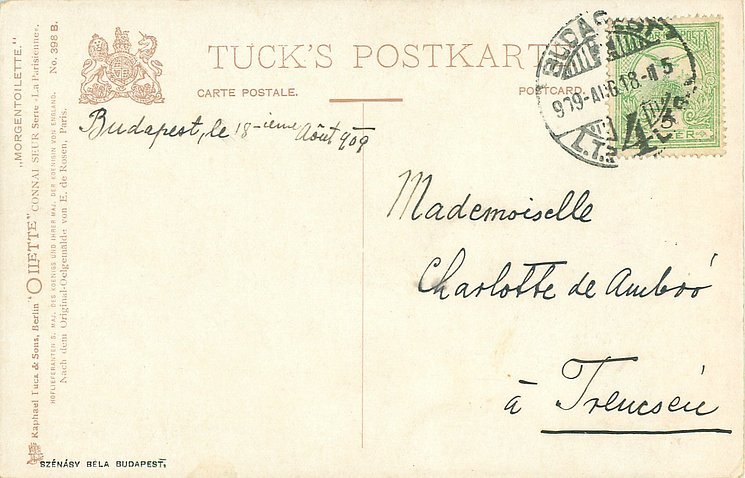 TUCK'S POSTKARTE
CARTE POSTALE.
POSTCARD.
Budapest, le 18-ième Août 909
BUDAPEST
909 AUG 18
4
Mademoiselle
Charlotte de Ambró
à Trencsén
„MORGENTOILETTE."
Raphael Tuck & Sons, Berlin "OILETTE" CONNAISSEUR Serie „La Parisienne" No. 398 B.
HOFLIEFERANTEN S. MAJ. DES KOENIGS UND IHRER MAJ. DER KOENIGIN VON ENGLAND.
Nach dem Original-Oelgemälde von E. de Rosen, Paris.
SZÉNÁSY BÉLA BUDAPEST,